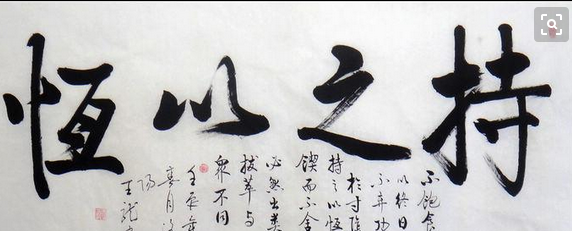 持之以恆
不飽食
以終日
不弃功
於寸陰
持之以恆
鍥而不舍
必然出类
拔萃与
眾不同
壬辰年